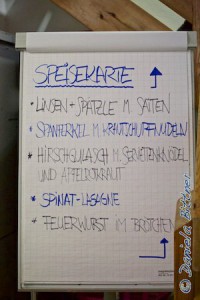 SPEISEKARTE
* LINSEN + SPÄTZLE M. SAITEN
* SPANFERKEL M. KRAUTSCHUPFNUDELN
* HIRSCHGULASCH M. SERVIETTENKNÖDEL
UND APFELROTKRAUT
* SPINAT-LASAGNE
* FEUERWURST IM BRÖTCHEN
© Daniela Büttner